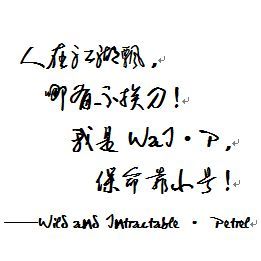 人在江湖飘,
哪有不挨刀!
我是WaI·P,
保命靠小号!
——Wild and Intractable · Petrel